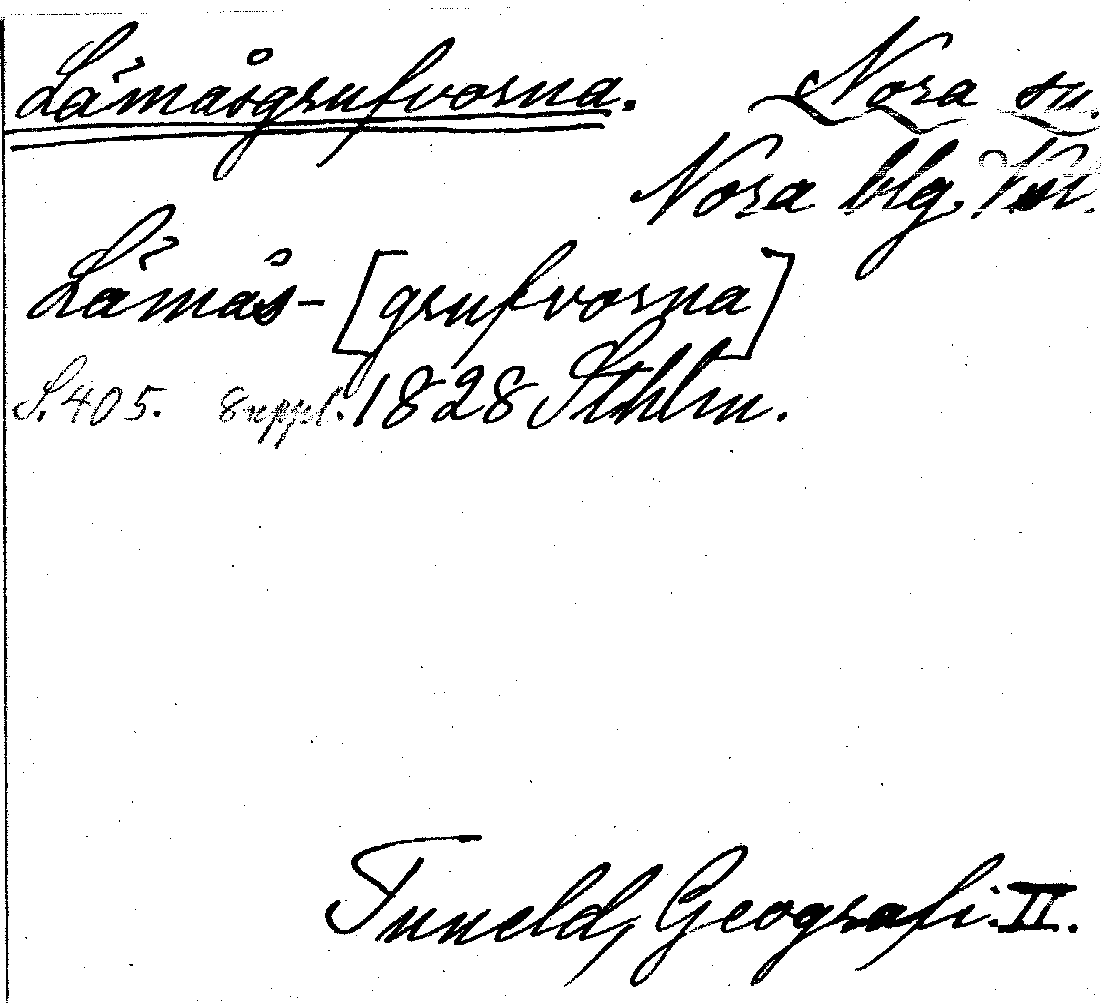 Lämåsgrufvorna. Nora sn.
Nora blg.
Lämås-[grufvorna]
S. 405. Suppl. 1828 Sthlm.
Tuneld, Geografi. II.